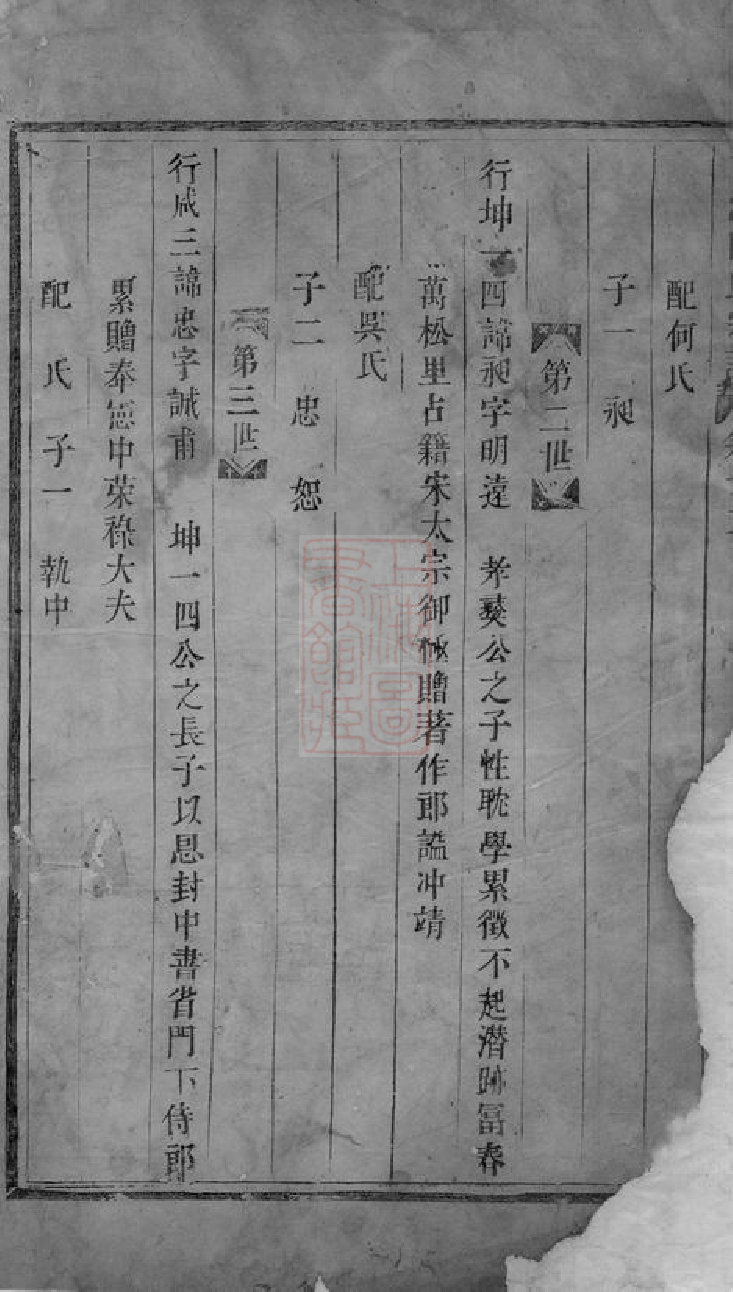 配何氏
子一 昶
第二世
行坤一四諱昶字明遠 孝䕫公之子性耽學累徵不起潛跡富春
萬松里占籍宋太宗御極贈著作郎謚冲靖
配吳氏
子二 忠 恕
第三世
行咸三諱忠字誠甫 坤一四公之長子以恩封中書省門下侍郎
累贈奉憲中荣祿大夫
配 氏 子一 執中
上海圖書館藏